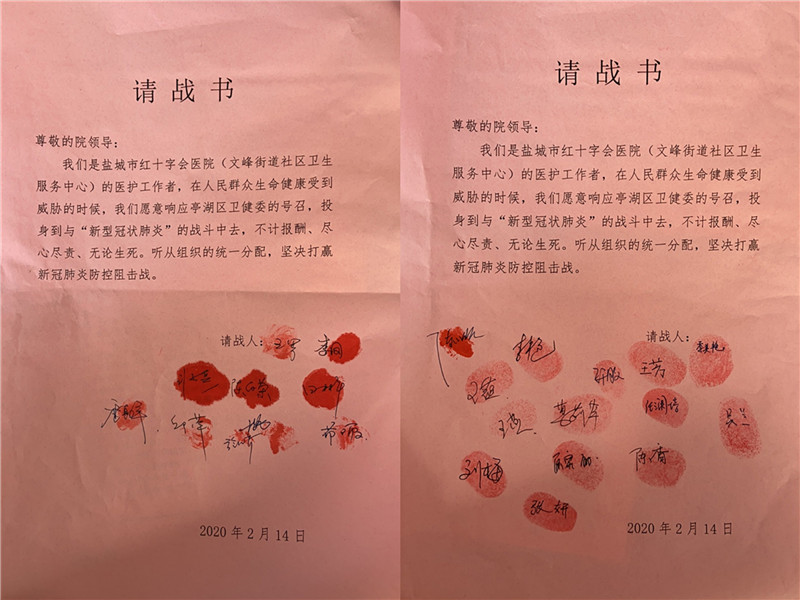 请战书
尊敬的院领导：
我们是盐城市红十字会医院（文峰街道社区卫生
服务中心）的医护工作者，在人民群众生命健康受到
威胁的时候，我们愿意响应亭湖区卫健委的号召，投
身到与“新型冠状肺炎”的战斗中去，不计报酬、尽
心尽责、无论生死。听从组织的统一分配，坚决打赢
新冠肺炎防控阻击战。
请战人：
2020年2月14日
请战书
尊敬的院领导：
我们是盐城市红十字会医院（文峰街道社区卫生
服务中心）的医护工作者，在人民群众生命健康受到
威胁的时候，我们愿意响应亭湖区卫健委的号召，投
身到与“新型冠状肺炎”的战斗中去，不计报酬、尽
心尽责、无论生死。听从组织的统一分配，坚决打赢
新冠肺炎防控阻击战。
请战人：
李艳
王芳
吴兰
张妍
2020年2月14日